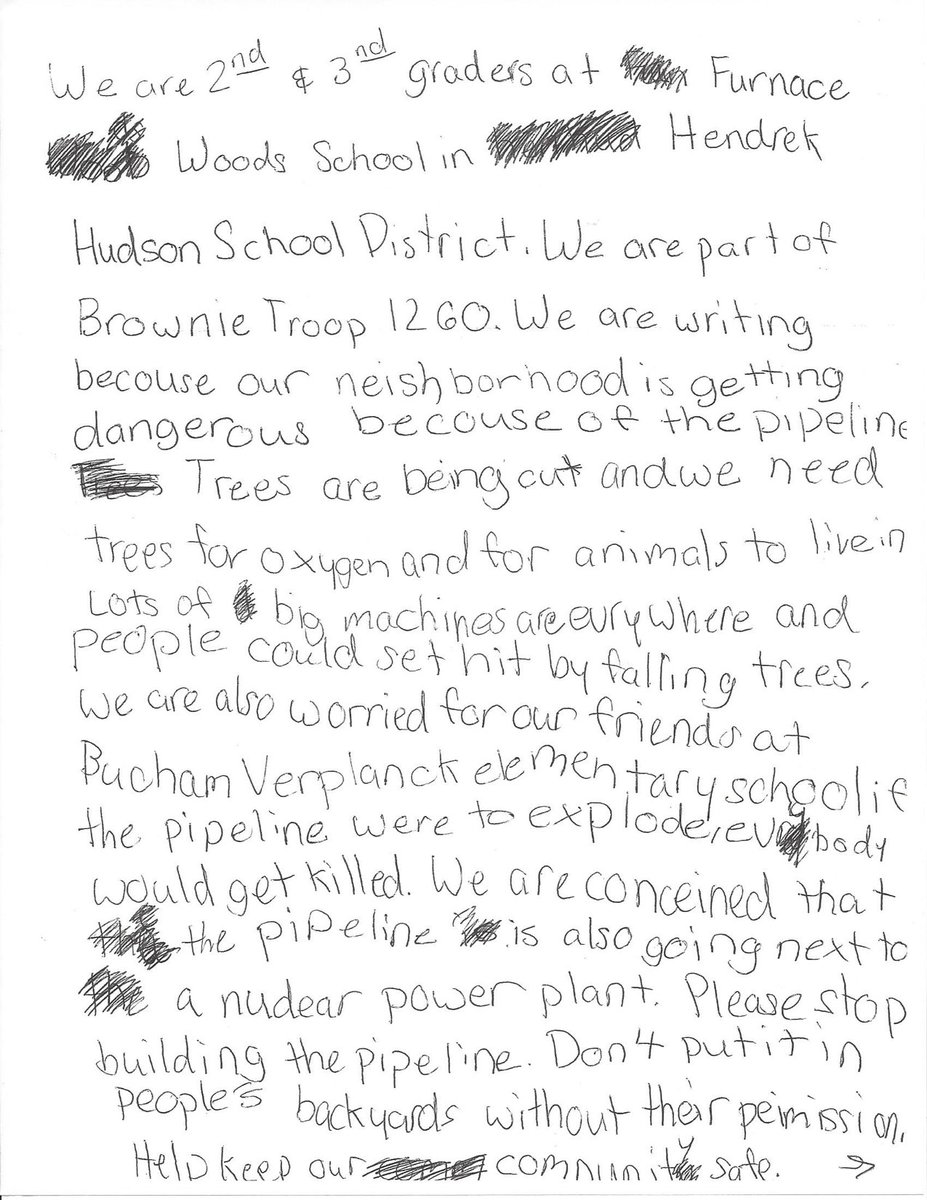 We are 2nd & 3nd graders at Furnace
Woods School in Hendrek
Hudson School District. We are part of
Brownie Troop 1260. We are writing
becouse our neishborhood is getting
dangerous becouse of the pipeline
Trees are being cut and we need
trees for oxygen and for animals to live in
Lots of big machines are eurywhere and
people could set hit by falling trees.
We are also worried for our friends at
Bucham Verplanck elementary school if
the pipeline were to explode, evybody
would get killed. We are conceined that
the pipeline is also going next to
a nuclear power plant. Please stop
building the pipeline. Don't put it in
people's backyards without their peimission.
Help keep our community safe. →